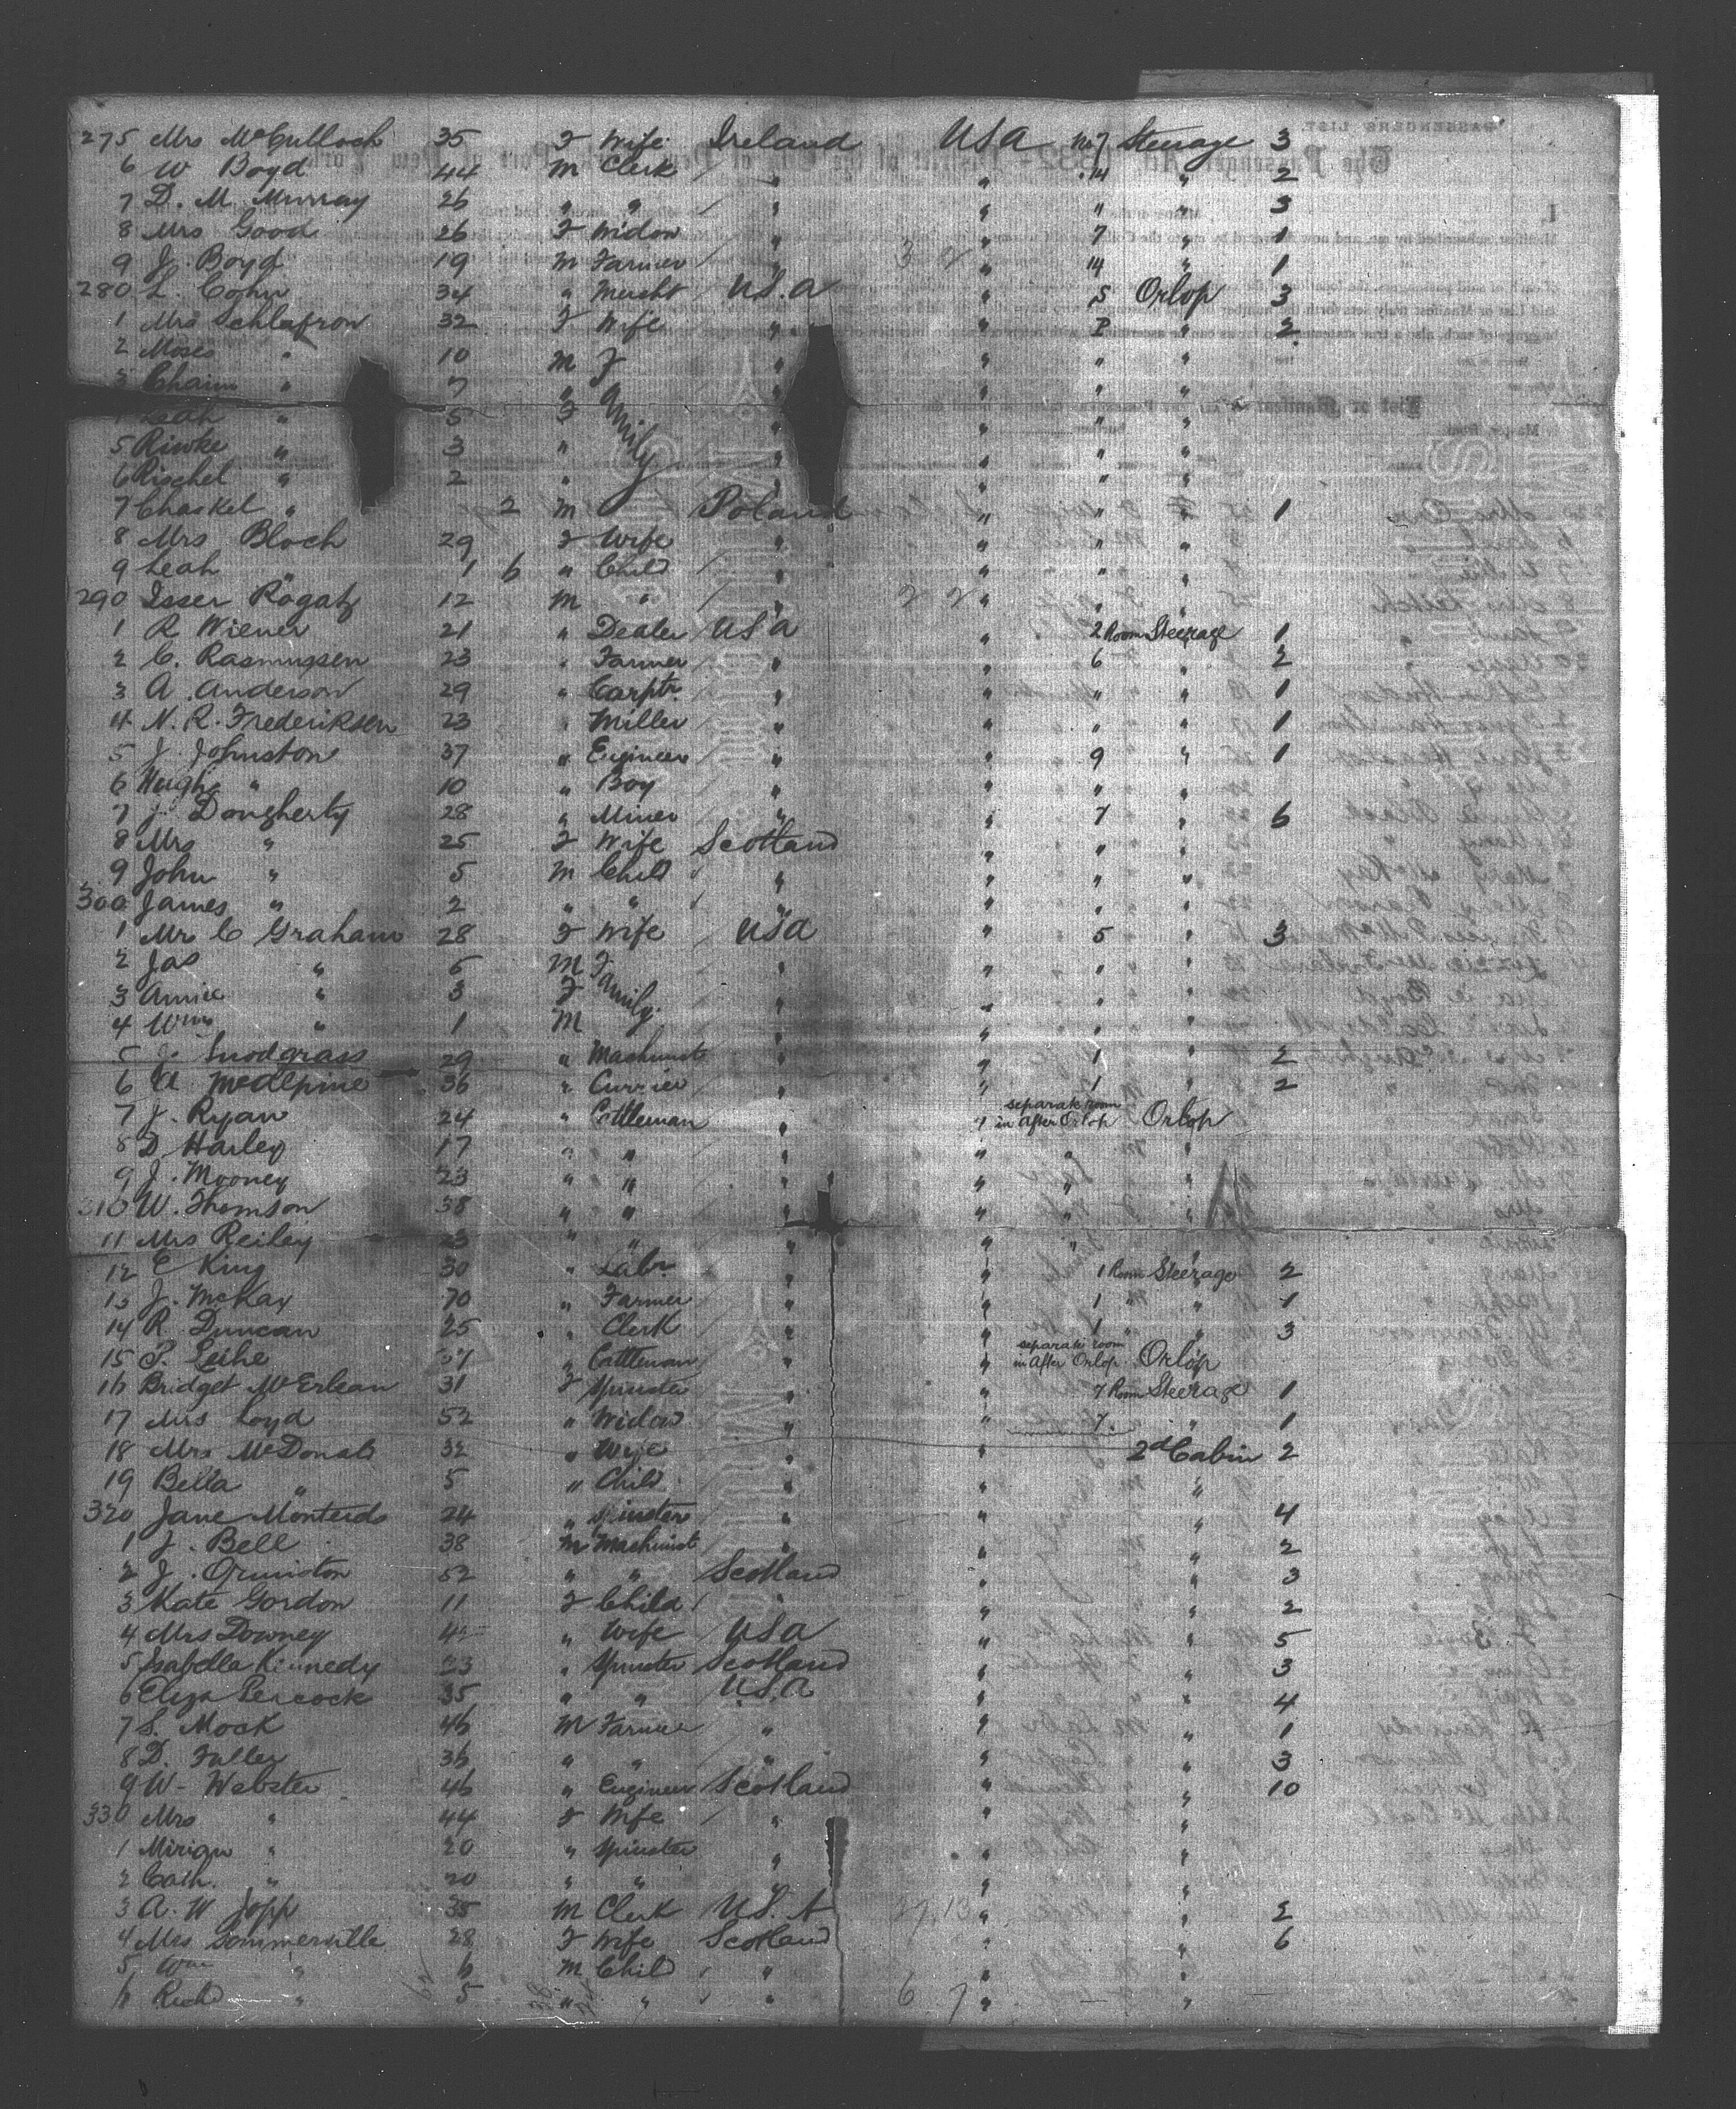 275 Mrs McCulloch 35 F Wife Ireland USA No 7 Steerage 3
6 W Boyd 44 M Clerk / " " 14 " 2
7 D. M. Murray 26 " " / " " " " 3
8 Mrs Good 26 F Widow " " 7 " 1
9 J. Boyd 19 M Farmer / " " 14 " 1
280 L. Cohn 34 " Mercht / U.S.A " 5 Orlop 3
1 Mrs Schlafron 32 F Wife " " " 2
2 Moses " 10 M Family " " " "
3 Chaim " 7 " " " "
4 Leah " 5 F " " " "
5 Riwke " 3 " " " " "
6 Rischel " 2 " " " " "
7 Chaskel " 2 M Poland " " " 1
8 Mrs Bloch 29 F Wife " " " "
9 Leah " 1 6 " Child / " " " "
290 Isser Rogatz 12 M " / " " " "
1 R Wiener 21 " Dealer USA " 2 Room Steerage 1
2 C. Rasmussen 23 " Farmer " " 6 " 2
3 A. Anderson 29 " Carptr " " " " 1
4 N. R. Frederiksen 23 " Miller " " " " 1
5 J. Johnston 37 " Engineer / " " 9 " 1
6 Hugh " 10 " Boy " " " "
7 J. Dougherty 28 " Miner " " 7 " 6
8 Mrs " 25 F Wife Scotland " " "
9 John " 5 M Child " " " "
300 James " 2 " " " " " "
1 Mr C Graham 28 F Wife / USA " 5 " 3
2 Jas " M Family " " " "
3 Annie " 3 F " " " "
4 Wm " 1 M " " " "
5 J. Snodgrass 29 " Machinist " " 1 " 2
6 A. McAlpine 36 " Currier " " 1 " 2
7 J. Ryan 24 " Cattleman " " separate room in After Orlop Orlop
8 D Harley 17 " " " " " "
9 J. Mooney 23 " " " " " "
310 W. Thomson 38 " " " " " "
11 Mrs Reiley " " " " "
12 E King 30 " Labr " " 1 Room Steerage 2
13 J. McKay 70 " Farmer " " 1 " " 1
14 R. Duncan 25 " Clerk " " 1 " " 3
15 P. Leihe " Cattleman " " separate room in After Orlop Orlop
16 Bridget McErlean 31 F Spinster " " 7 Room Steerage 1
17 Mrs Loyd 52 " Widow " " 7. " 1
18 Mrs McDonald 32 " Wife " " 2d Cabin 2
19 Bella " 5 " Child " " "
320 Jane 24 " Spinster " " " 4
1 J. Bell 38 M Machinist " " " 2
2 J. Ormiston 52 " " Scotland " " 3
3 Kate Gordon 11 F Child " " " 2
4 Mrs Downey " Wife / USA " " 5
5 Isabella Kennedy 23 " Spinster Scotland " " 3
6 Eliza Peacock 35 " " U.S.A " " 4
7 S. Mock 46 M Farmer " " " 1
8 D. Fuller 36 " " " " " 3
9 W. Webster 46 " Engineer Scotland " " 10
330 Mrs " 44 F Wife / " " "
1 Mirian " 20 " Spinster " " "
2 Cath. " 20 " " " " "
3 A. W Jopp 35 M Clerk U.S. A " 2
4 Mrs Sommerville 28 F Wife Scotland " " 6
5 Wm " 6 M Child " " "
6 Richd " 5 " " " " "